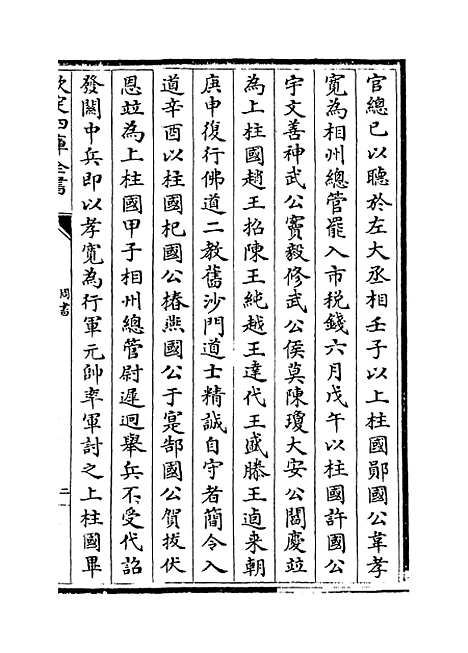 官總已以聽於左大丞相壬子以上柱國鄖國公韋孝
寛為相州總管罷入市税錢六月戊午以柱國許國公
宇文善神武公竇毅修武公侯莫陳瓊大安公閻慶竝
為上柱國趙王招陳王純越王達代王盛滕王逌来朝
庚申復行佛道二教舊沙門道士精誠自守者簡令入
道辛酉以柱國杞國公椿燕國公于寔郜國公賀拔伏
恩竝為上柱國甲子相州總管尉遲迥舉兵不受代詔
發關中兵即以孝寛為行軍元帥率軍討之上柱國畢
欽定四庫全書
周書
二